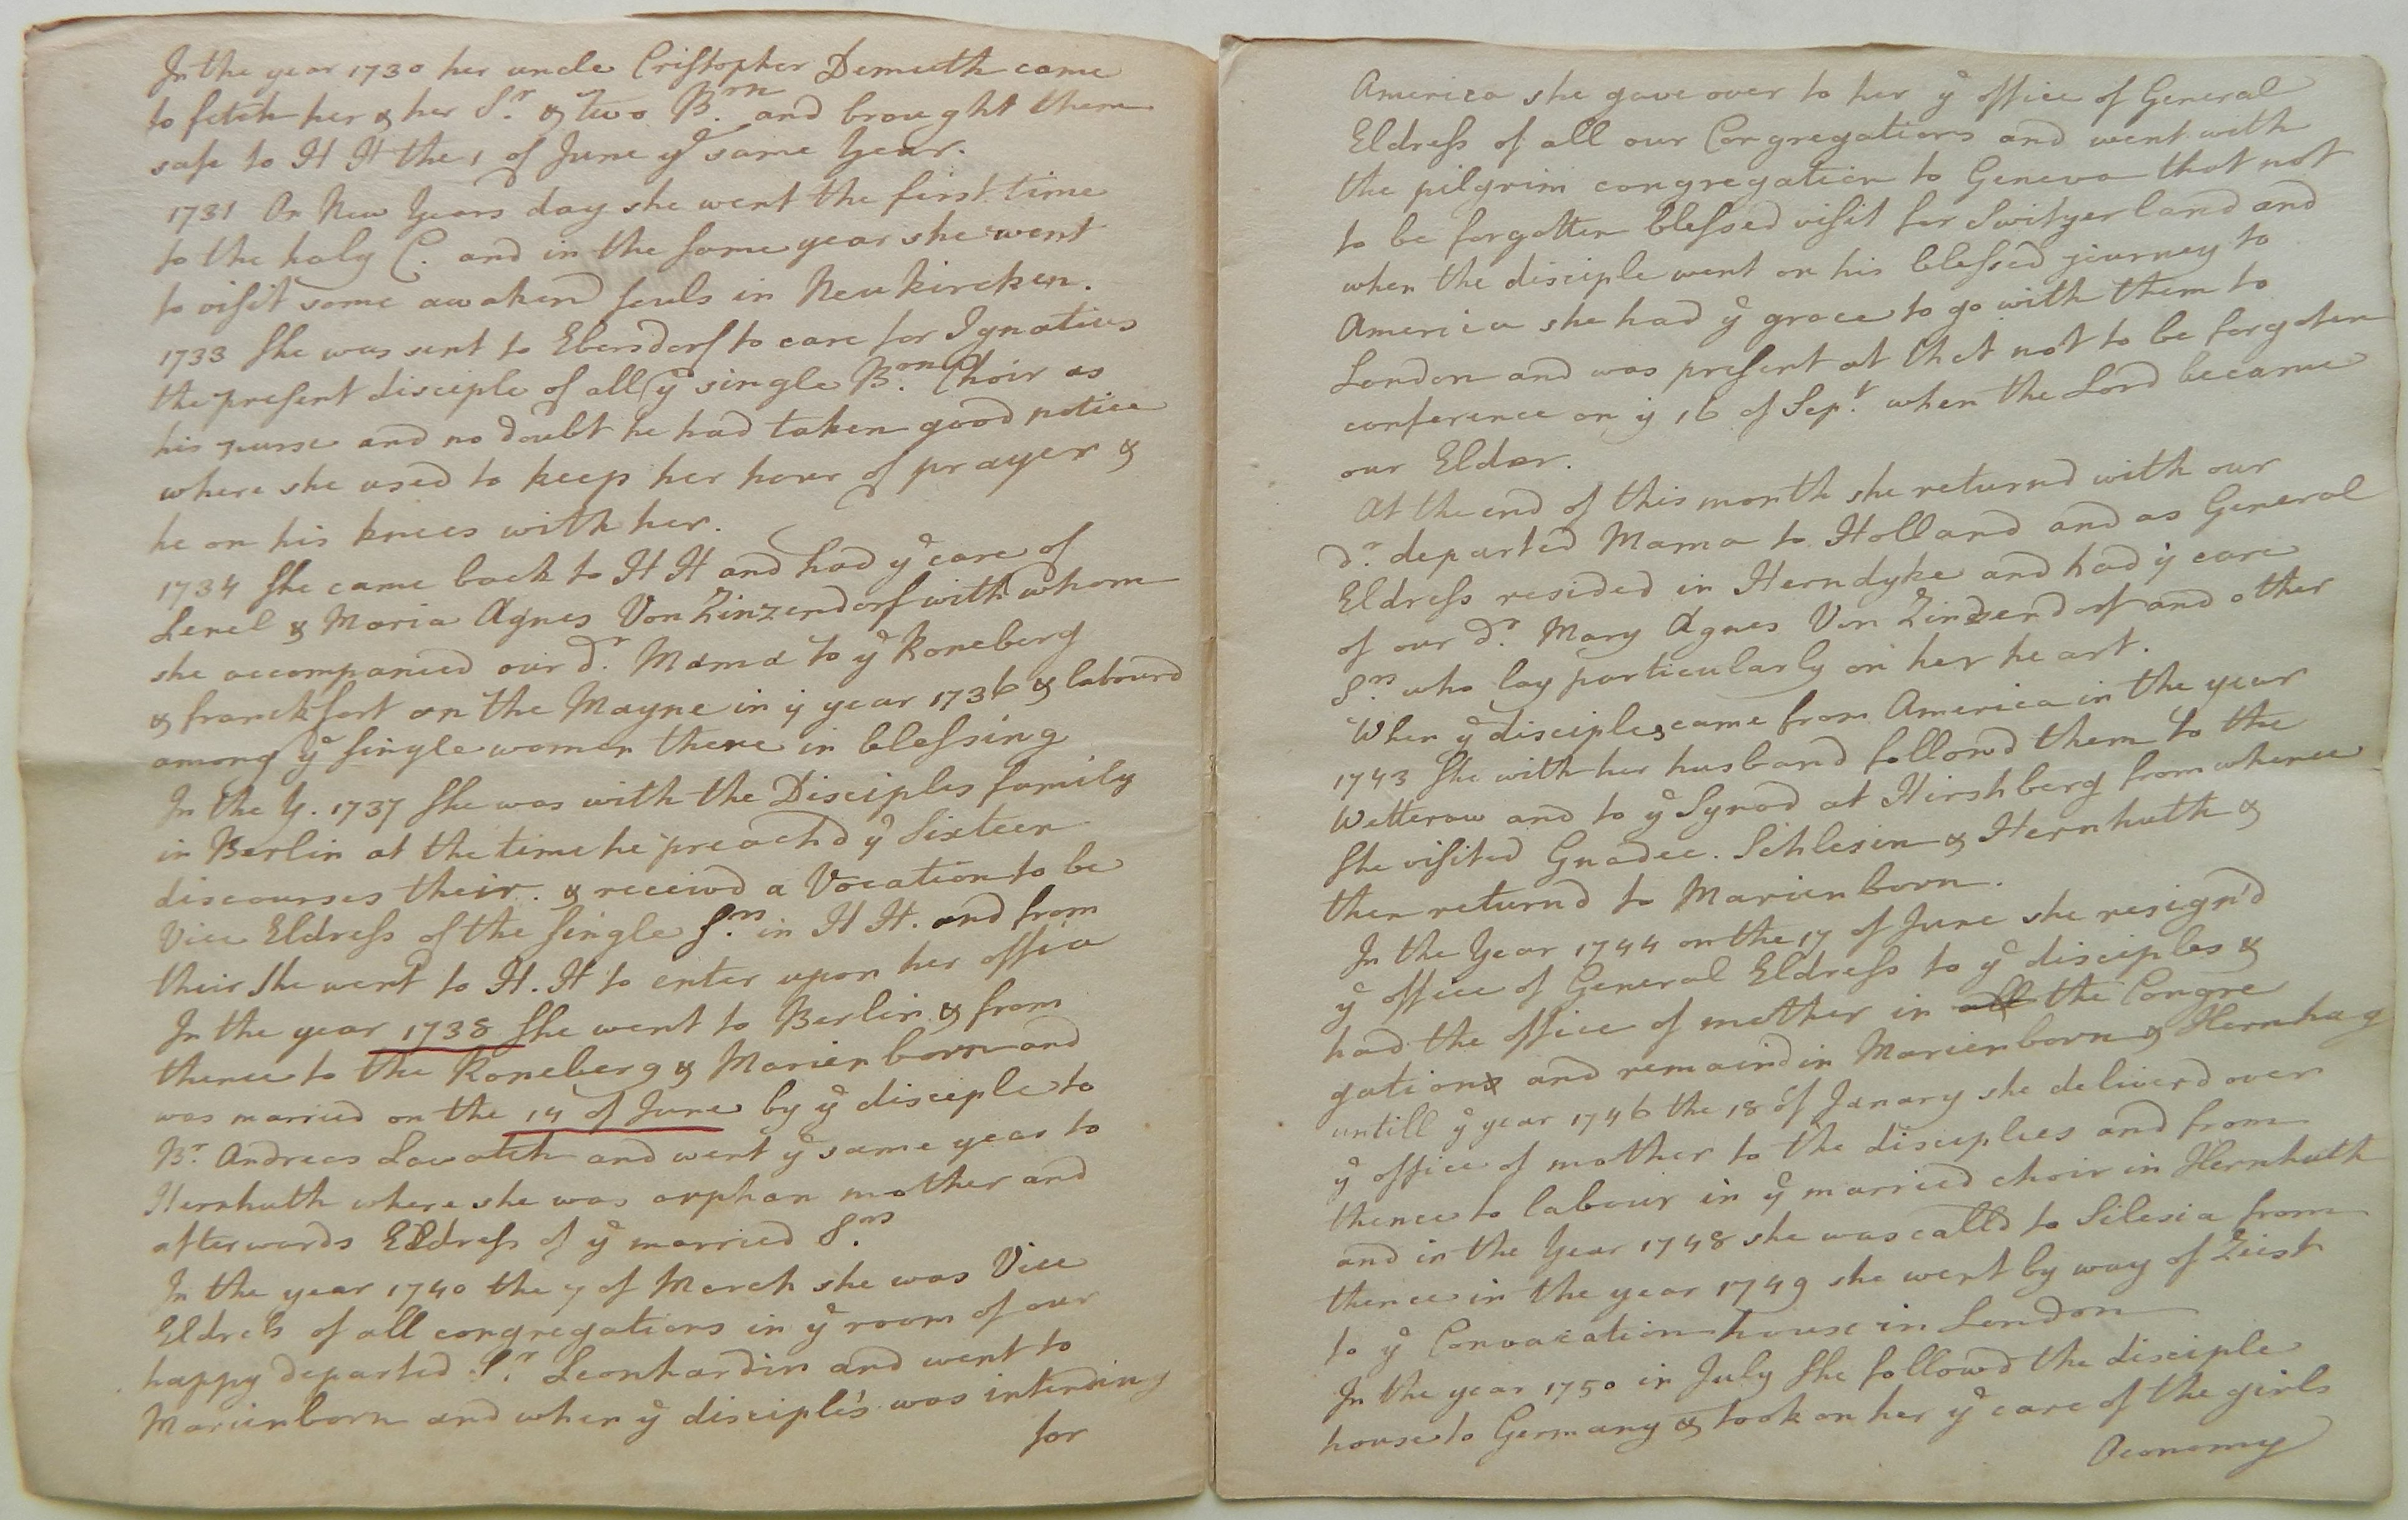 In the year 1730 her uncle Cristopher Demuth came
to fetch her & her Sr. & two Brn. and brought them
safe to H H the 1 of June ye same Year.
1731 On New Years day she went the first time
to the holy C. and in the same year she went
to visit some awakend souls in Neukircken.
1733 She was sent to Ebersdorf to care for Ignatius
the present disciple of all ye single Bren. Choir as
his nurse and no doubt he had taken good notice
where she used to keep her hour of prayer &
he on his knees with her.
1734 She came back to H H and had ye care of
Lenel & Maria Agnes Von Zinzendorf with whom
she accompanied our dr. Mama to ye Roneberg
& franckfort on the Mayne in ye year 1736 & labourd
among ye single women there in blessing
In the Y. 1737 She was with the Disciples family
in Berlin at the time he preachd ye Sixteen
discourses their. & receivd a Vocation to be
Vice Eldress of the single Srs. in H H. and from
their She went to H. H to enter upon her office
In the year 1738 She went to Berlin & from
thence to the Roneberg & Marienborn and
was married on the 14 of June by ye disciple to
Br. Andreas Lawatch and went ye same year to
Hernhuth where she was orphan mother and
afterwards Eldress of ye married Srs.
In the year 1740 the 7 of March she was Vice
Eldress of all congregations in ye room of our
happy departed Sr. Leonhardin and went to
Marienborn and when ye disciple's was intending
for
America she gave over to her ye office of General
Eldress of all our Congregations and went with
the pilgrim congregation to Geneva that not
to be forgotten blessed visit for Switzerland and
when the disciple went on his blessed journey to
America she had ye grace to go with them to
London and was present at that not to be forgoten
conference on ye 16 of Sept. when the Lord became
our Elder.
At the end of this month she returnd with our
dr. departed Mama to Holland and as General
Eldress resided in Herndyke and had ye care
of our dr. Mary Agnes Von Zinzendorf and other
Srs. who lay particularly on her heart.
When ye disciples came from America in the year
1743 She with her husband followd them to the
Wetteraw and to ye Synod at Hirshberg from whence
She visited Gnadec. Schlesin & Hernhuth &
then returnd to Marienborn.
In the Year 1744 on the 17 of June she resign'd
ye office of General Eldress to ye disciples &
had the office of mother in all the Congre
gation and remaind in Marienborn & Hernhag
untill ye year 1746 the 18 of Janary she deliverd over
ye office of mother to the disciples and from
thence to labour in ye married choir in Hernhuth
and in the Year 1748 she was calld to Silesia from
thence in the year 1749 she went by way of Zeist
to ye Convocation house in London
In the year 1750 in July She followd the disciple
house to Germany & took on her ye care of the girls
Oconomy